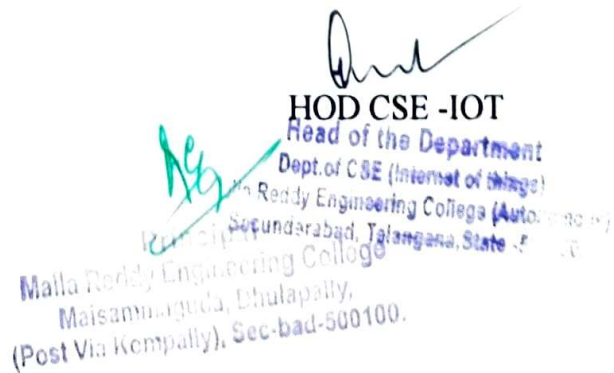 HOD CSE -IOT
Head of the Department
Dept.of CSE (Internet of things)
Reddy Engineering College
Secunderabad, Telangana, State
Malla Reddy Engineering College
Maisammaguda, Dhulapally,
(Post Via Kompally), Sec-bad-500100.